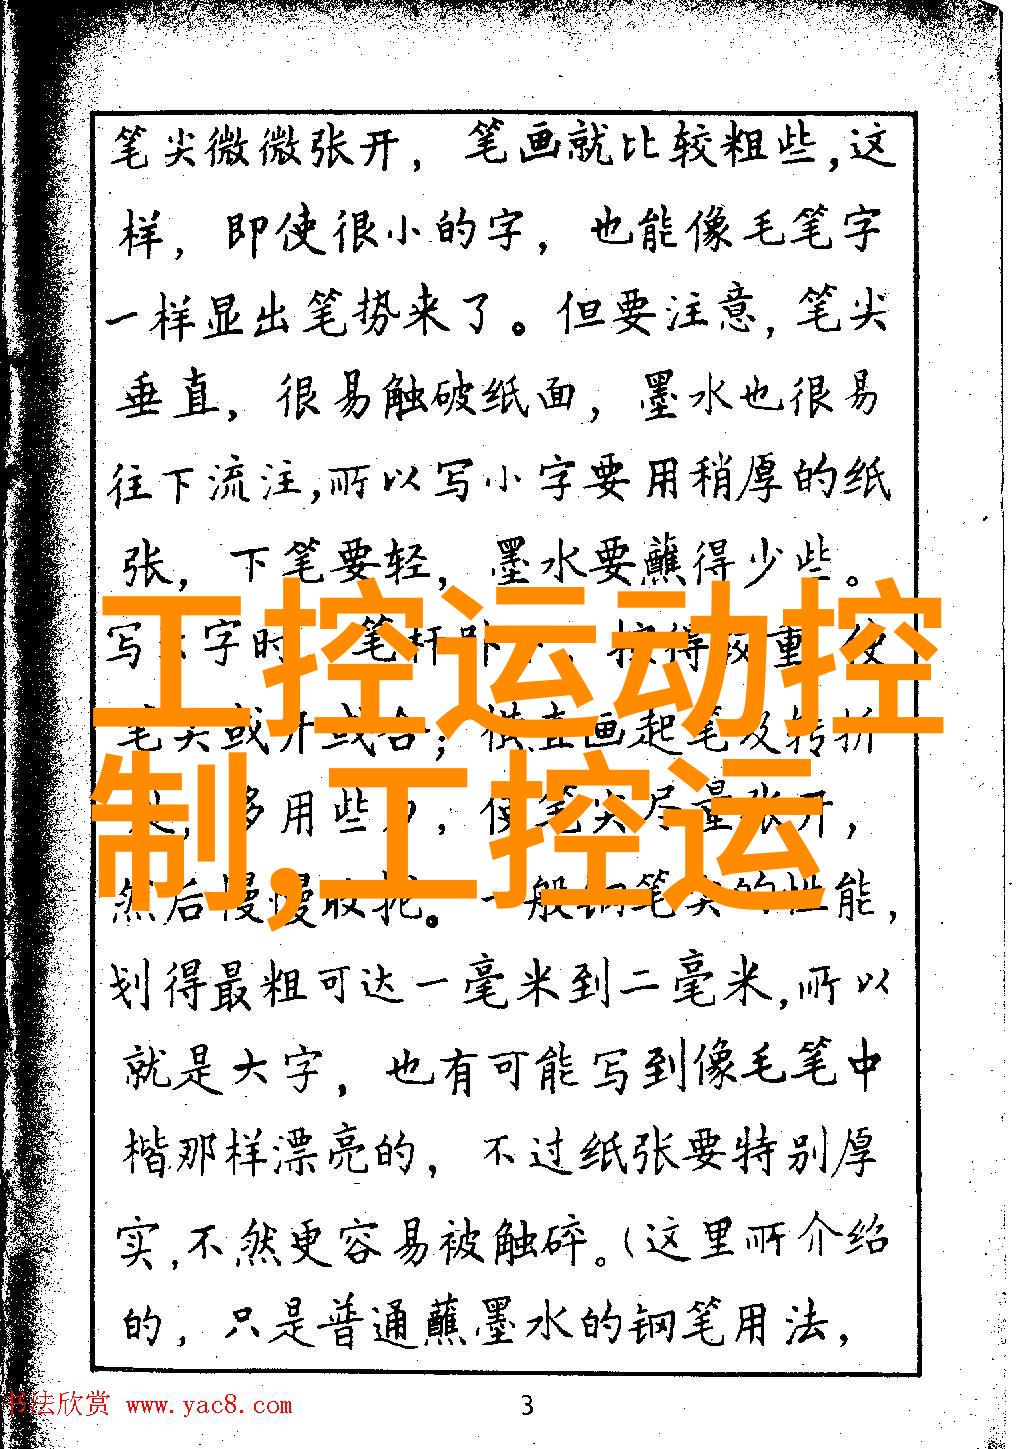 笔尖微微张开，笔画就比较粗些,这
样，即使很小的字，也能像毛笔字
一样显出笔势来了。但要注意,笔尖
垂直，很易触破纸面，墨水也很易
往下流注,所以写小字要用稍厚的纸
张，下笔要轻，墨水要蘸得少些。
写 字时 笔杆卧 ，按得较重
笔尖或开或合；横直画起笔及转折
多用些力，使笔尖尽量张开，
然后慢慢收拢。一般钢笔尖的性能，
工控运动控
制,工控运
划得最粗可达一毫米到二毫米,所以
就是大字，也有可能写到像毛笔中
楷那样漂亮的，不过纸张要特别厚
实,不然更容易被触碎。（这里所介绍
的，只是普通蘸墨水的钢笔用法，
书法欣赏 www.yac8.com
3